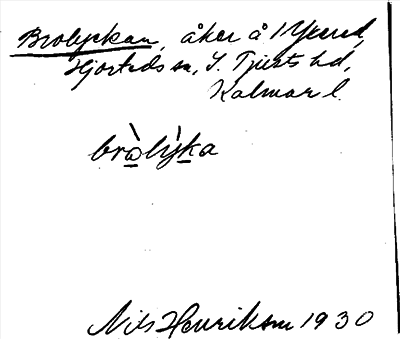 Brolyckan, åker å 1 Ykered,
Hjorteds sn, S. Tjusts hd,
Kalmar l.
bròlỳka
Nils Henrikson 1930